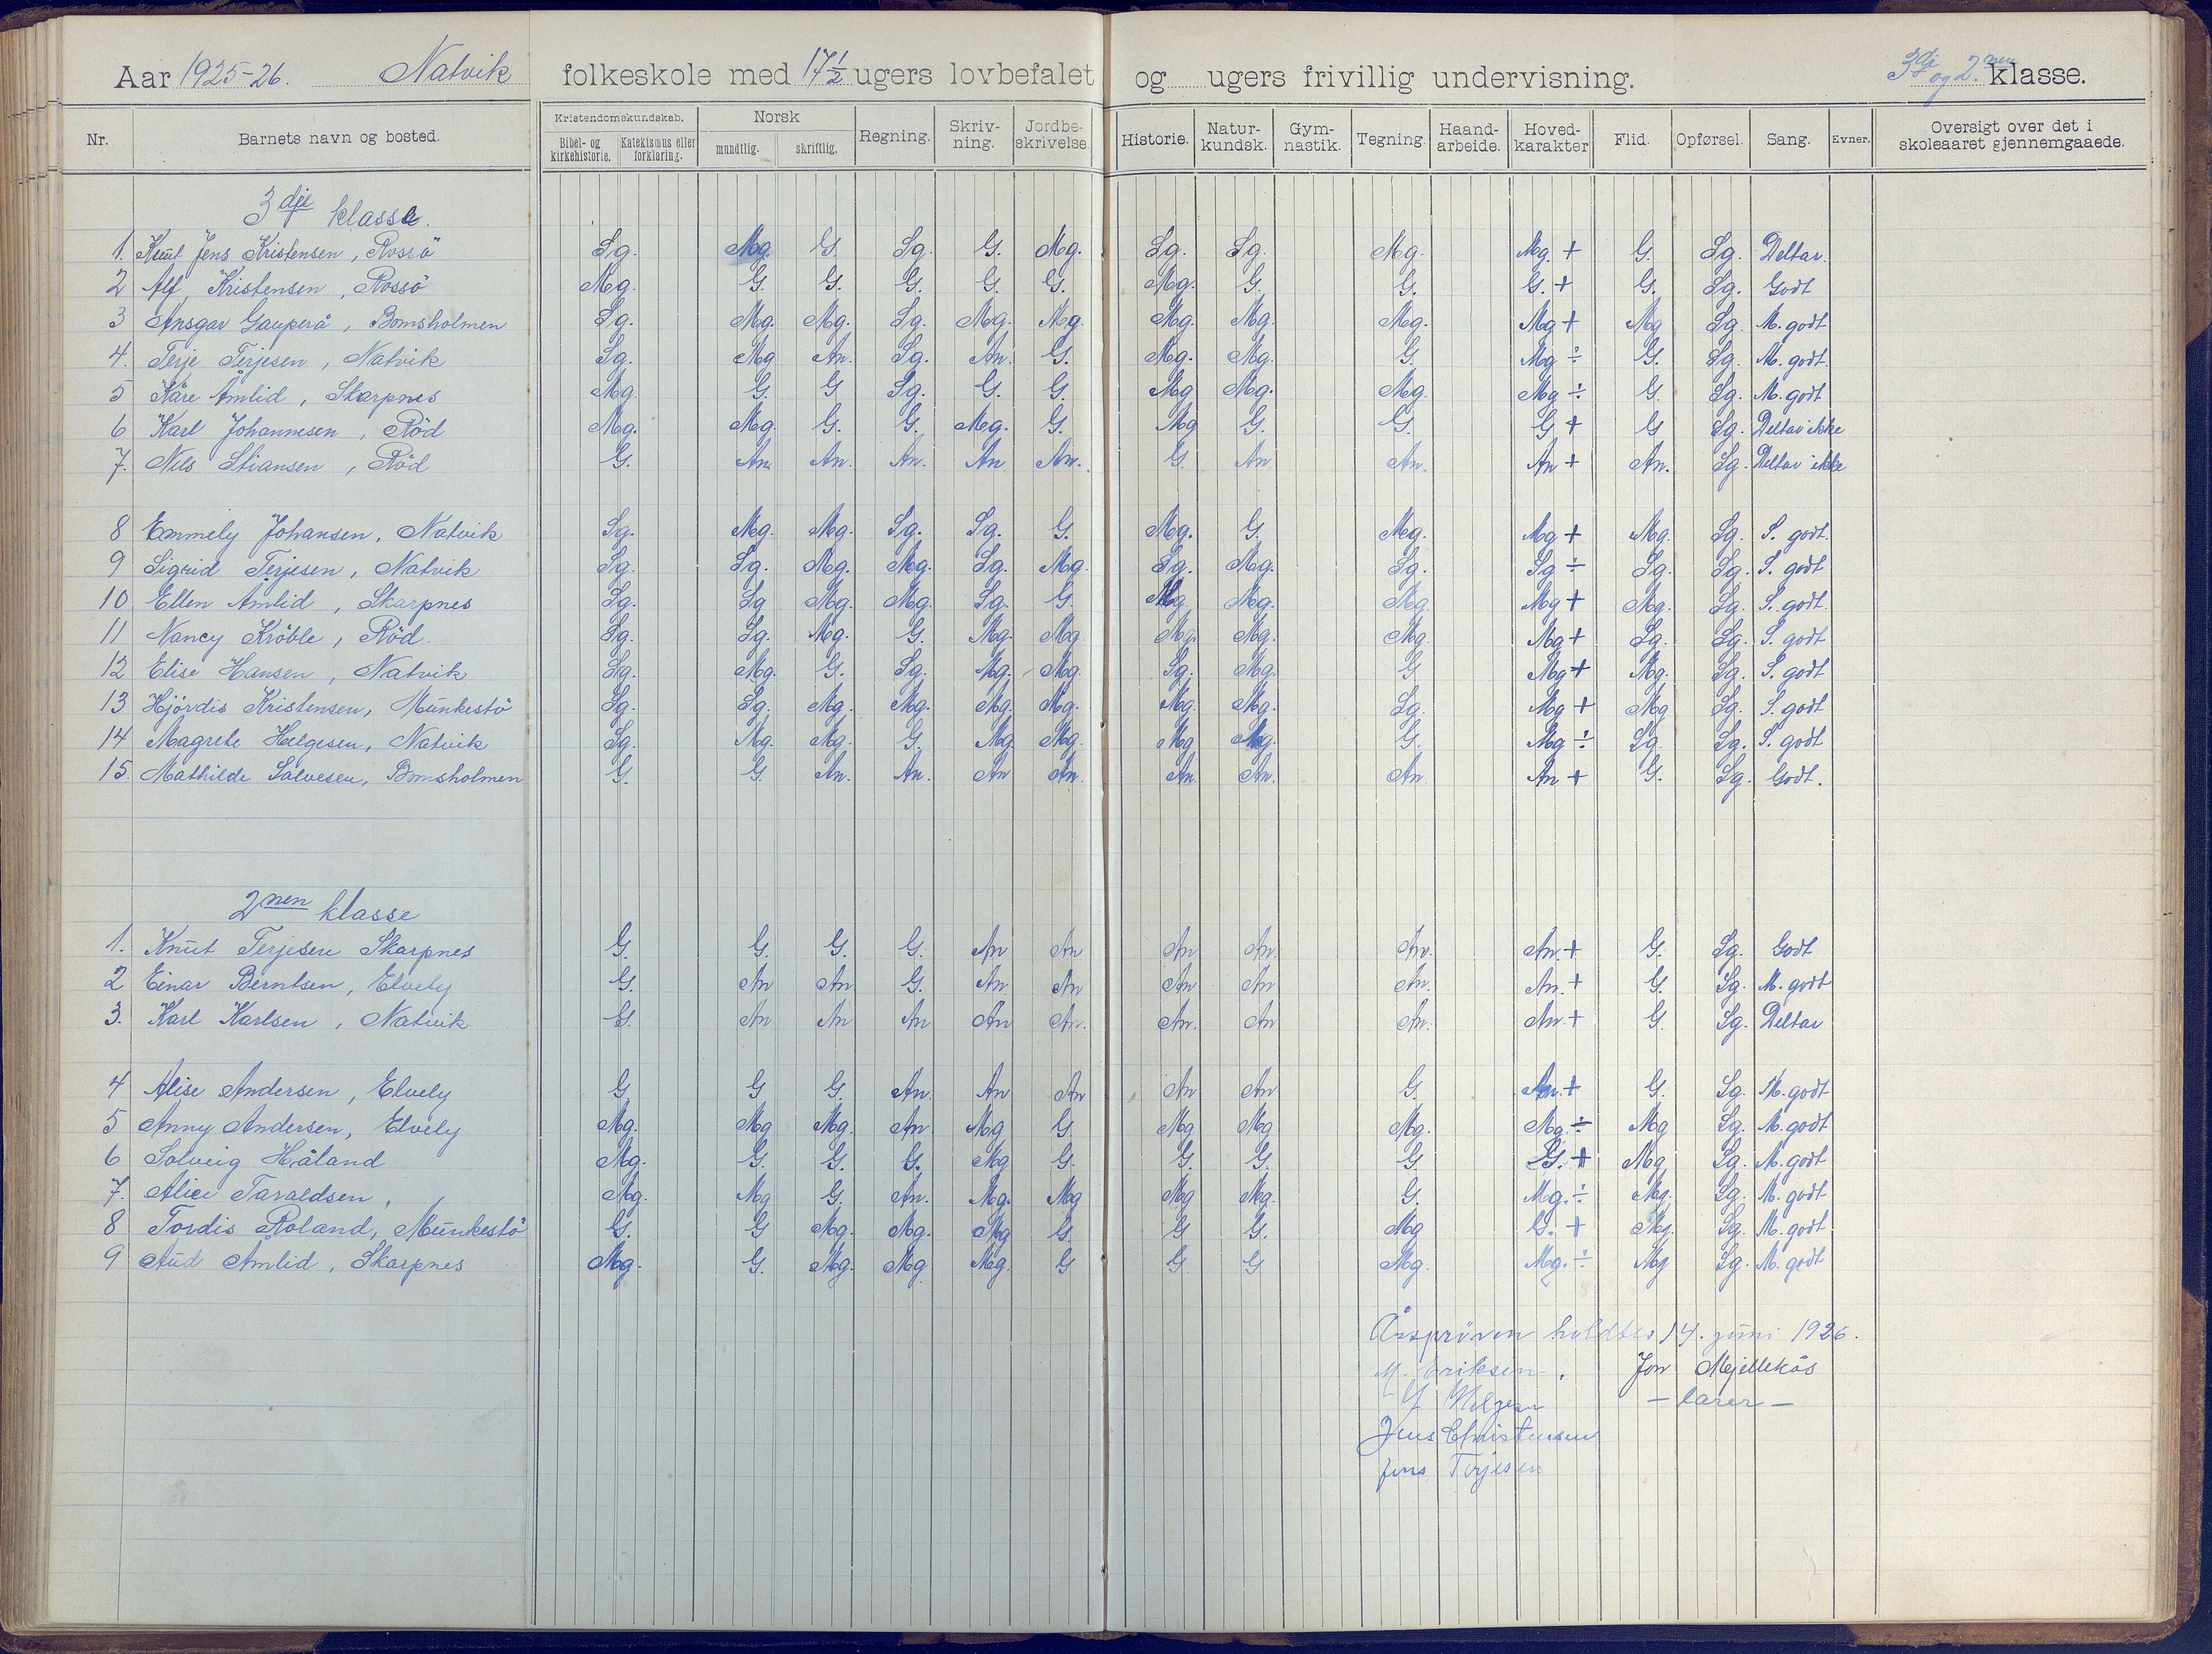 Aar 1925-26. Natvik folkeskole med 17 1/2 ugers lovbefalet og ugers frivillig undervisning. 3dje og 2nen klasse.
Nr. Barnets navn og bosted. Kristendomskundskab. Bibel- og kirkehistorie. Katekismus eller forklaring. Norsk mundtlig. skriftlig. Regning. Skriv-ning. Jordbe-skrivelse. Historie. Natur-kundsk. Gym-nastik. Tegning. Haand-arbeide. Hoved-karakter Flid. Opførsel. Sang. Evner. Oversigt over det i skoleaaret gjennemgaaede.
3dje klasse.
1. Knut Jens Kristensen, Rossö Sg. Mg. G. Sg. G. Mg. Sg. Sg. Mg. Mg. + G. Sg. Deltar.
2 Alf Kristensen, Rossö Mg. G. G. G. G. G. Mg. G. G. G. + G. Sg. Godt
3 Ansgar Gauperå, Bomsholmen Sg. Mg. Mg. Sg. Mg. Mg. Mg. Mg. Mg. Mg + Mg Sg. M. godt
4. Terje Terjesen, Natvik Sg. Mg An. Sg. An. G. Mg. Mg. G. Mg ÷ G. Sg. M. godt.
5 Kåre Amlid, Skarpnes Mg. G G Sg. G. G. Mg Mg. Mg. Mg ÷ G. Sg. M. godt
6 Karl Johannesen, Röd Mg. Mg. G. G. Mg. G. Mg G. G. G + G Sg. Deltar ikke
7. Nils Stiansen, Röd G. An. An. An. An An. G. An. An. An + An. Sg. Deltar ikke
8 Emmely Johansen, Natvik Sg. Mg. Mg. Sg. Sg. G. Mg. G. Mg. Mg + Mg. Sg. S. godt.
9 Sigrid Terjesen, Natvik Sg. Sg. Mg. Mg. Sg. Mg. Sg. Mg. Sg. Sg ÷ Sg. Sg. S. godt
10 Ellen Amlid, Skarpnes Sg. Sg Mg. Mg. Sg. G. Mg. Mg. Mg. Mg + Mg. Sg. S. godt.
11 Nancy Kröble, Röd. Sg. Sg. Mg. G. Mg. Mg. Mg. Mg. Mg. Mg + Sg. Sg. S. godt
12 Elise Hansen, Natvik Sg. Mg. G. Sg. Mg. Mg. Sg. Mg. G Mg + Mg. Sg. S. godt
13 Hjördis Kristensen, Munkestö Sg. Sg. Mg. Mg. Mg. Mg. Mg. Mg. Sg. Mg + Mg Sg. S. godt
14 Magrete Helgesen, Natvik Sg. Mg. Mg. G. Mg. Mg. Mg Mg. G. Mg ÷ Sg. Sg. S. godt
15. Mathilde Salvesen, Bomsholmen G. G. An. An. An An. An. An. An An + G. Sg. Godt.
2nen klasse
1. Knut Terjesen Skarpnes G. G. G. G. An An An An. An. An. + G. Sg. Godt
2 Einar Berntsen, Elvely G. An An. G. An. An An An An. An. + G. Sg. M. godt
3. Karl Karlsen, Natvik G. An An An An An. An. An An. An. + G. Sg. Deltar
4 Alise Andersen, Elvely G G G. An. An An An An G. An. + G. Sg. M. godt
5 Anny Andersen, Elvely Mg. Mg Mg. An. Mg G Mg Mg Mg. Mg. ÷ Mg Sg. M. godt
6 Solveig Håland Mg. G. G. G. Mg G. G. G. G. G. + Mg Sg. M. godt
7. Alice Taraldsen, Mg. Mg G. An. Mg. Mg Mg Mg. G. Mg. ÷ Mg. Sg. M. godt
8 Tordis Roland, Munkestö G. G Mg. Mg. Mg G. G G. Mg G. + Mg. Sg. M. godt
9 Aud Amlid, Skarpnes Mg. G. Mg. Mg Mg. G G G Mg. Mg. ÷ Mg Sg. M. godt
Årspröven holdtes 14. juni 1926.
M. Eriksen. Jon Mjellekås
Helgesen – lærer –
Jens Christensen
Jens Terjesen